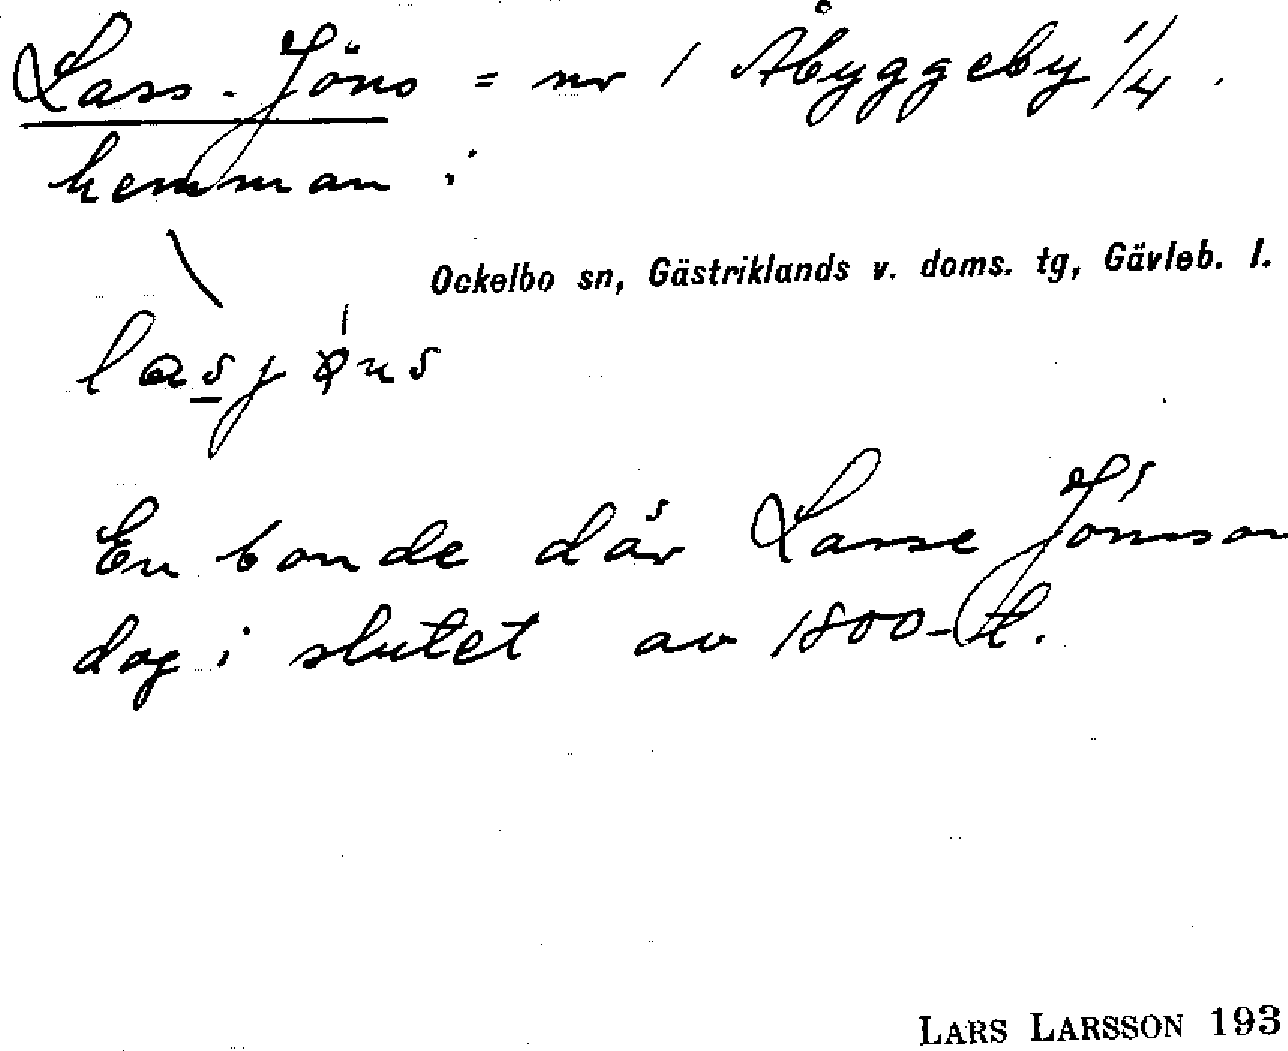 Lass-Jöns = nr 1 Åbyggeby 1/4.
hemman i
Ockelbo sn, Gästriklands v. doms. tg, Gävleb. l.
En bonde där Lasse Jönsson
dog i slutet av 1800-t.
LARS LARSSON 193